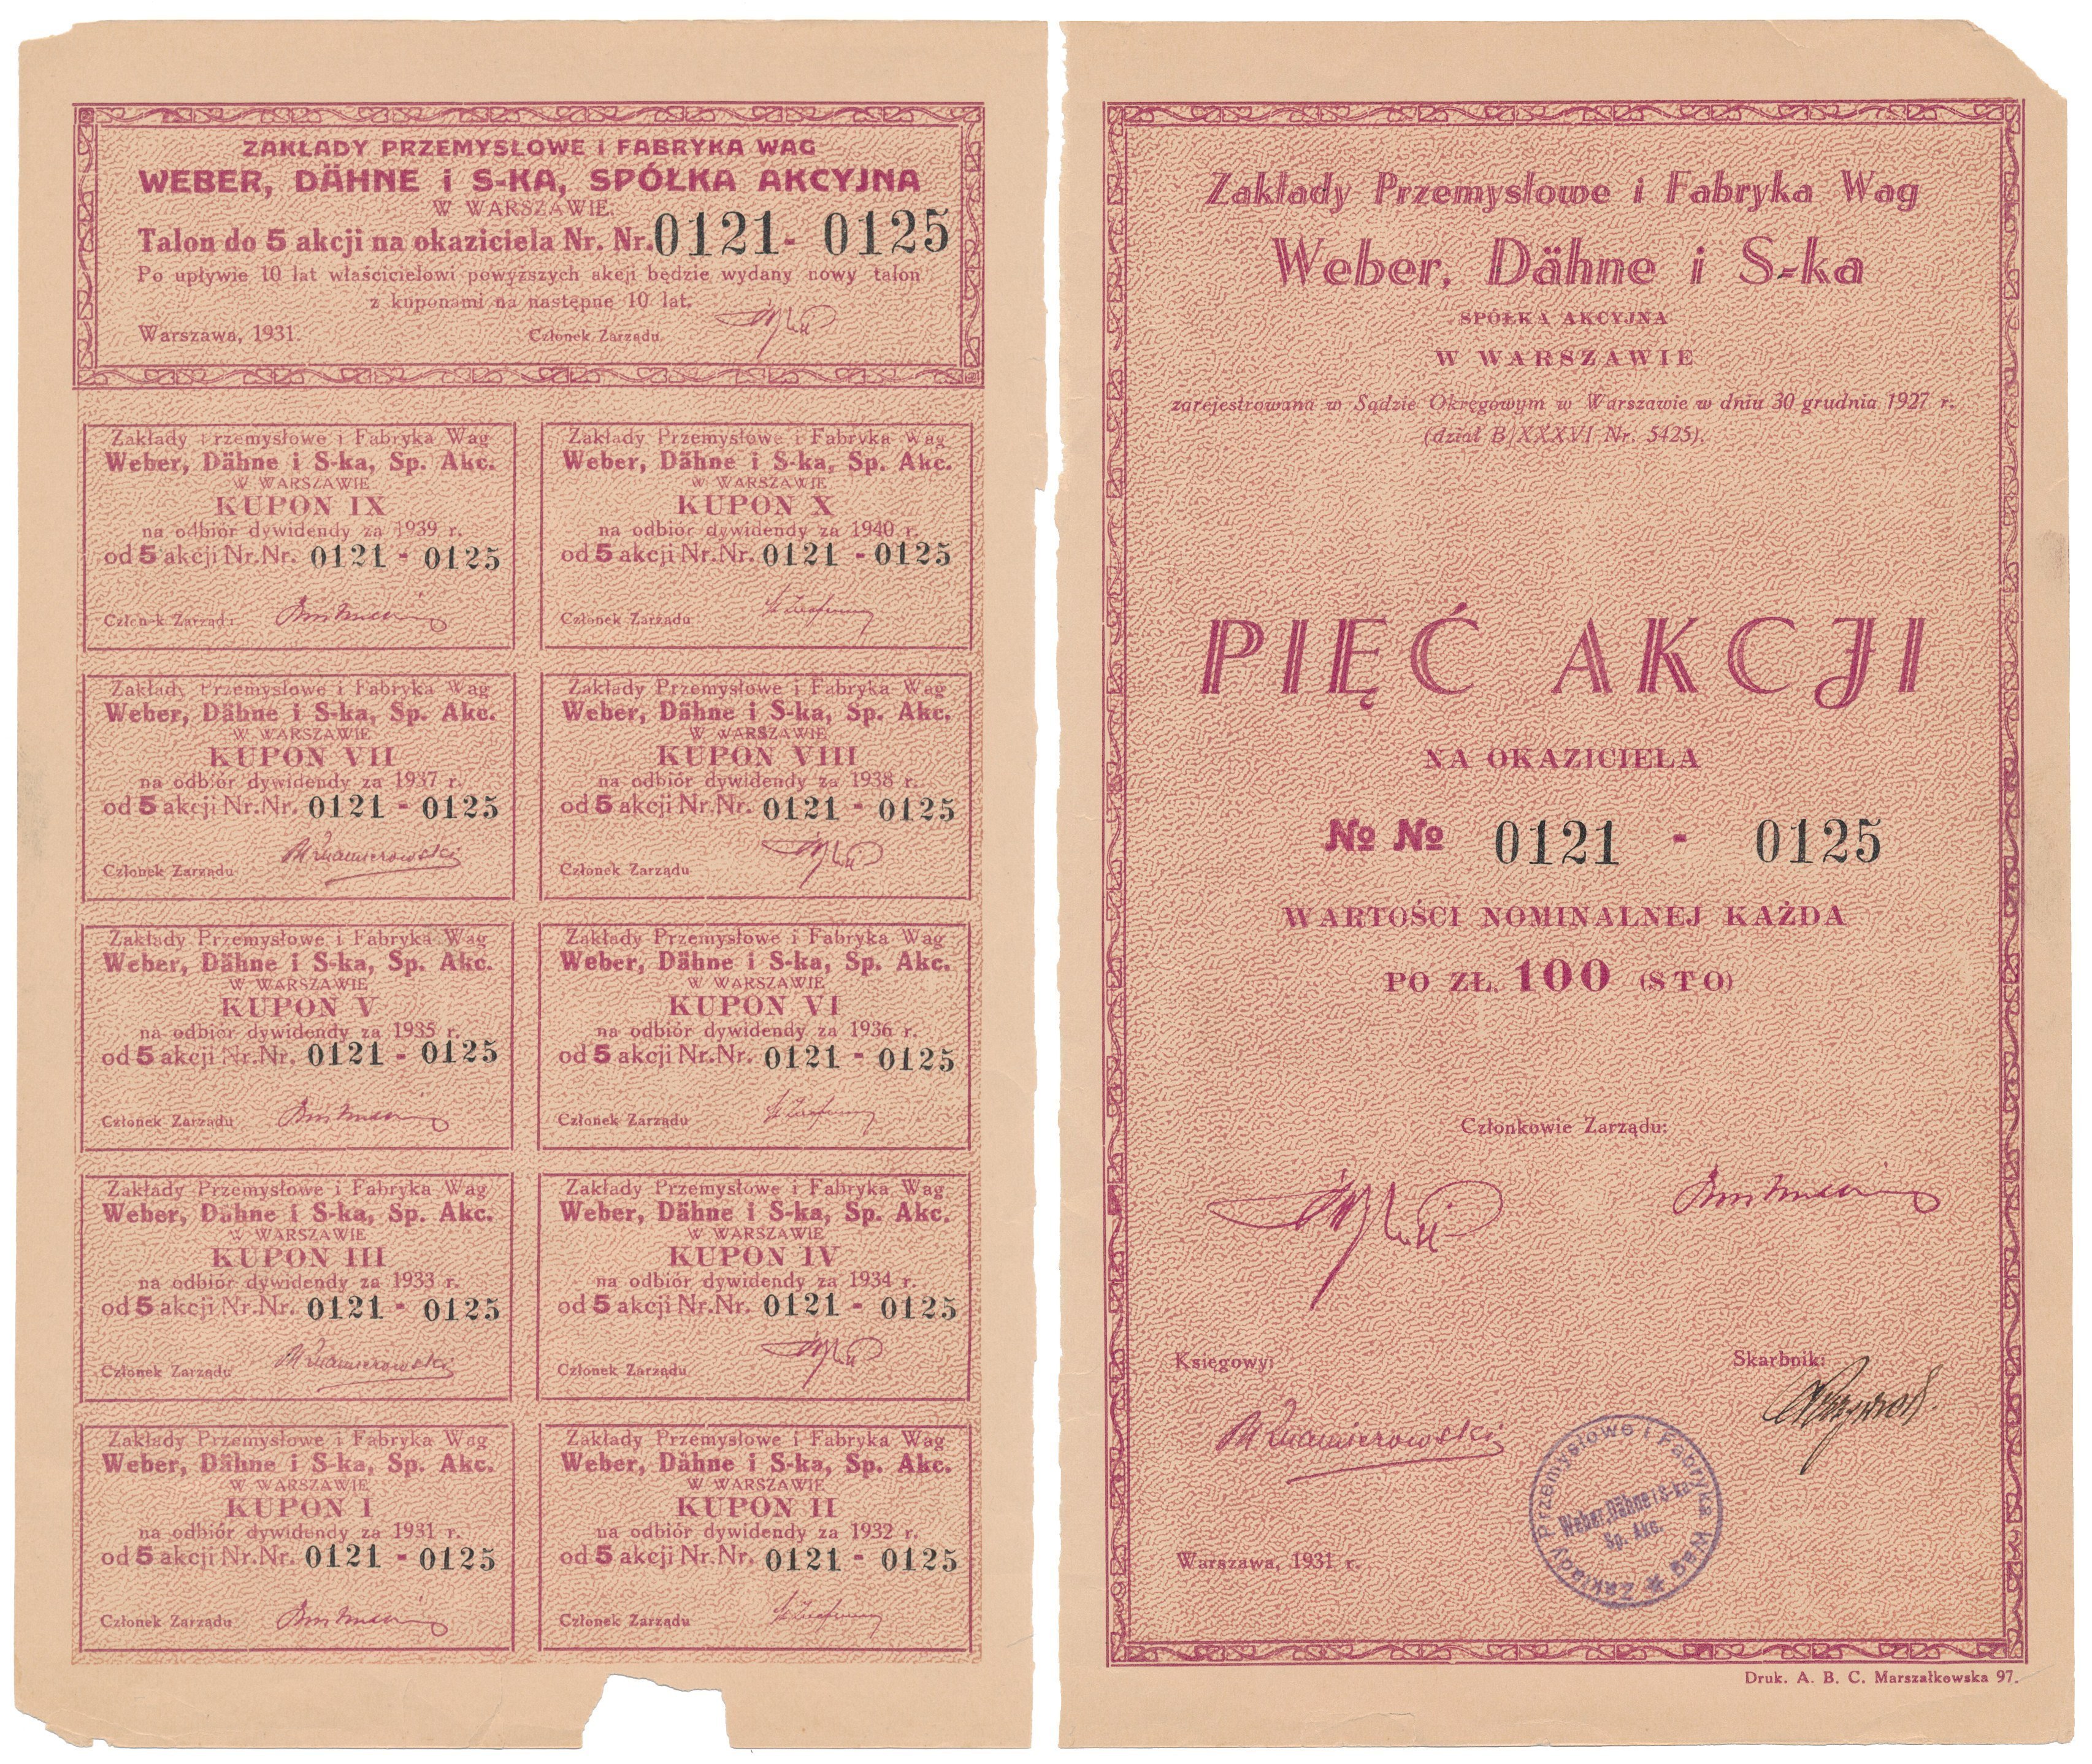 ZAKŁADY PRZEMYSŁOWE i FABRYKA WAG
WEBER, DÄHNE i S-KA, SPÓŁKA AKCYJNA
W WARSZAWIE.
Talon do 5 akcji na okaziciela Nr. Nr. 0121 - 0125
Po upływie 10 lat właścicielowi powyższych akcji będzie wydany nowy talon
z kuponami na następne 10 lat.
Warszawa, 1931. Członek Zarządu
Zakłady Przemysłowe i Fabryka Wag
Weber, Dähne i S-ka, Sp. Akc.
W WARSZAWIE
KUPON IX
na odbiór dywidendy za 1939 r.
od 5 akcji Nr.Nr. 0121 - 0125
Człen-k Zarząd
Zakłady Przemysłowe i Fabryka Wag
Weber, Dähne i S-ka, Sp. Akc.
W WARSZAWIE
KUPON X
na odbiór dywidendy za 1940 r.
od 5 akcji Nr.Nr. 0121 - 0125
Członek Zarządu
Zakłady Przemysłowe i Fabryka Wag
Weber, Dähne i S-ka, Sp. Akc.
W WARSZAWIE
KUPON VII
na odbiór dywidendy za 1937 r.
od 5 akcji Nr.Nr. 0121 - 0125
Członek Zarządu
Zakłady Przemysłowe i Fabryka Wag
Weber, Dähne i S-ka, Sp. Akc.
W WARSZAWIE
KUPON VIII
na odbiór dywidendy za 1938 r.
od 5 akcji Nr.Nr. 0121 - 0125
Członek Zarządu
Zakłady Przemysłowe i Fabryka Wag
Weber, Dähne i S-ka, Sp. Akc.
W WARSZAWIE
KUPON V
na odbiór dywidendy za 1935 r.
od 5 akcji Nr.Nr. 0121 - 0125
Członek Zarządu
Zakłady Przemysłowe i Fabryka Wag
Weber, Dähne i S-ka, Sp. Akc.
W WARSZAWIE
KUPON VI
na odbiór dywidendy za 1936 r.
od 5 akcji Nr.Nr. 0121 - 0125
Członek Zarządu
Zakłady Przemysłowe i Fabryka Wag
Weber, Dähne i S-ka, Sp. Akc.
W WARSZAWIE
KUPON III
na odbiór dywidendy za 1933 r.
od 5 akcji Nr.Nr. 0121 - 0125
Członek Zarządu
Zakłady Przemysłowe i Fabryka Wag
Weber, Dähne i S-ka, Sp. Akc.
W WARSZAWIE
KUPON IV
na odbiór dywidendy za 1934 r.
od 5 akcji Nr.Nr. 0121 - 0125
Członek Zarządu
Zakłady Przemysłowe i Fabryka Wag
Weber, Dähne i S-ka, Sp. Akc.
W WARSZAWIE
KUPON I
na odbiór dywidendy za 1931 r.
od 5 akcji Nr.Nr. 0121 - 0125
Członek Zarządu
Zakłady Przemysłowe i Fabryka Wag
Weber, Dähne i S-ka, Sp. Akc.
W WARSZAWIE
KUPON II
na odbiór dywidendy za 1932 r.
od 5 akcji Nr.Nr. 0121 - 0125
Członek Zarządu
Zakłady Przemysłowe i Fabryka Wag
Weber, Dähne i S-ka
SPÓŁKA AKCYJNA
W WARSZAWIE
zarejestrowana w Sądzie Okręgowym w Warszawie w dniu 30 grudnia 1927 r.
(dział B/XXXVI Nr. 5425).
PIĘĆ AKCJI
NA OKAZICIELA
№ № 0121 - 0125
WARTOŚCI NOMINALNEJ KAŻDA
PO ZŁ. 100 (STO)
Członkowie Zarządu:
Księgowy: Skarbnik:
Zakłady Przemysłowe i Fabryka Wag
Weber, Dähne i S-ka
Sp. Akc.
Warszawa, 1931 r.
Druk. A. B. C. Marszałkowska 97.